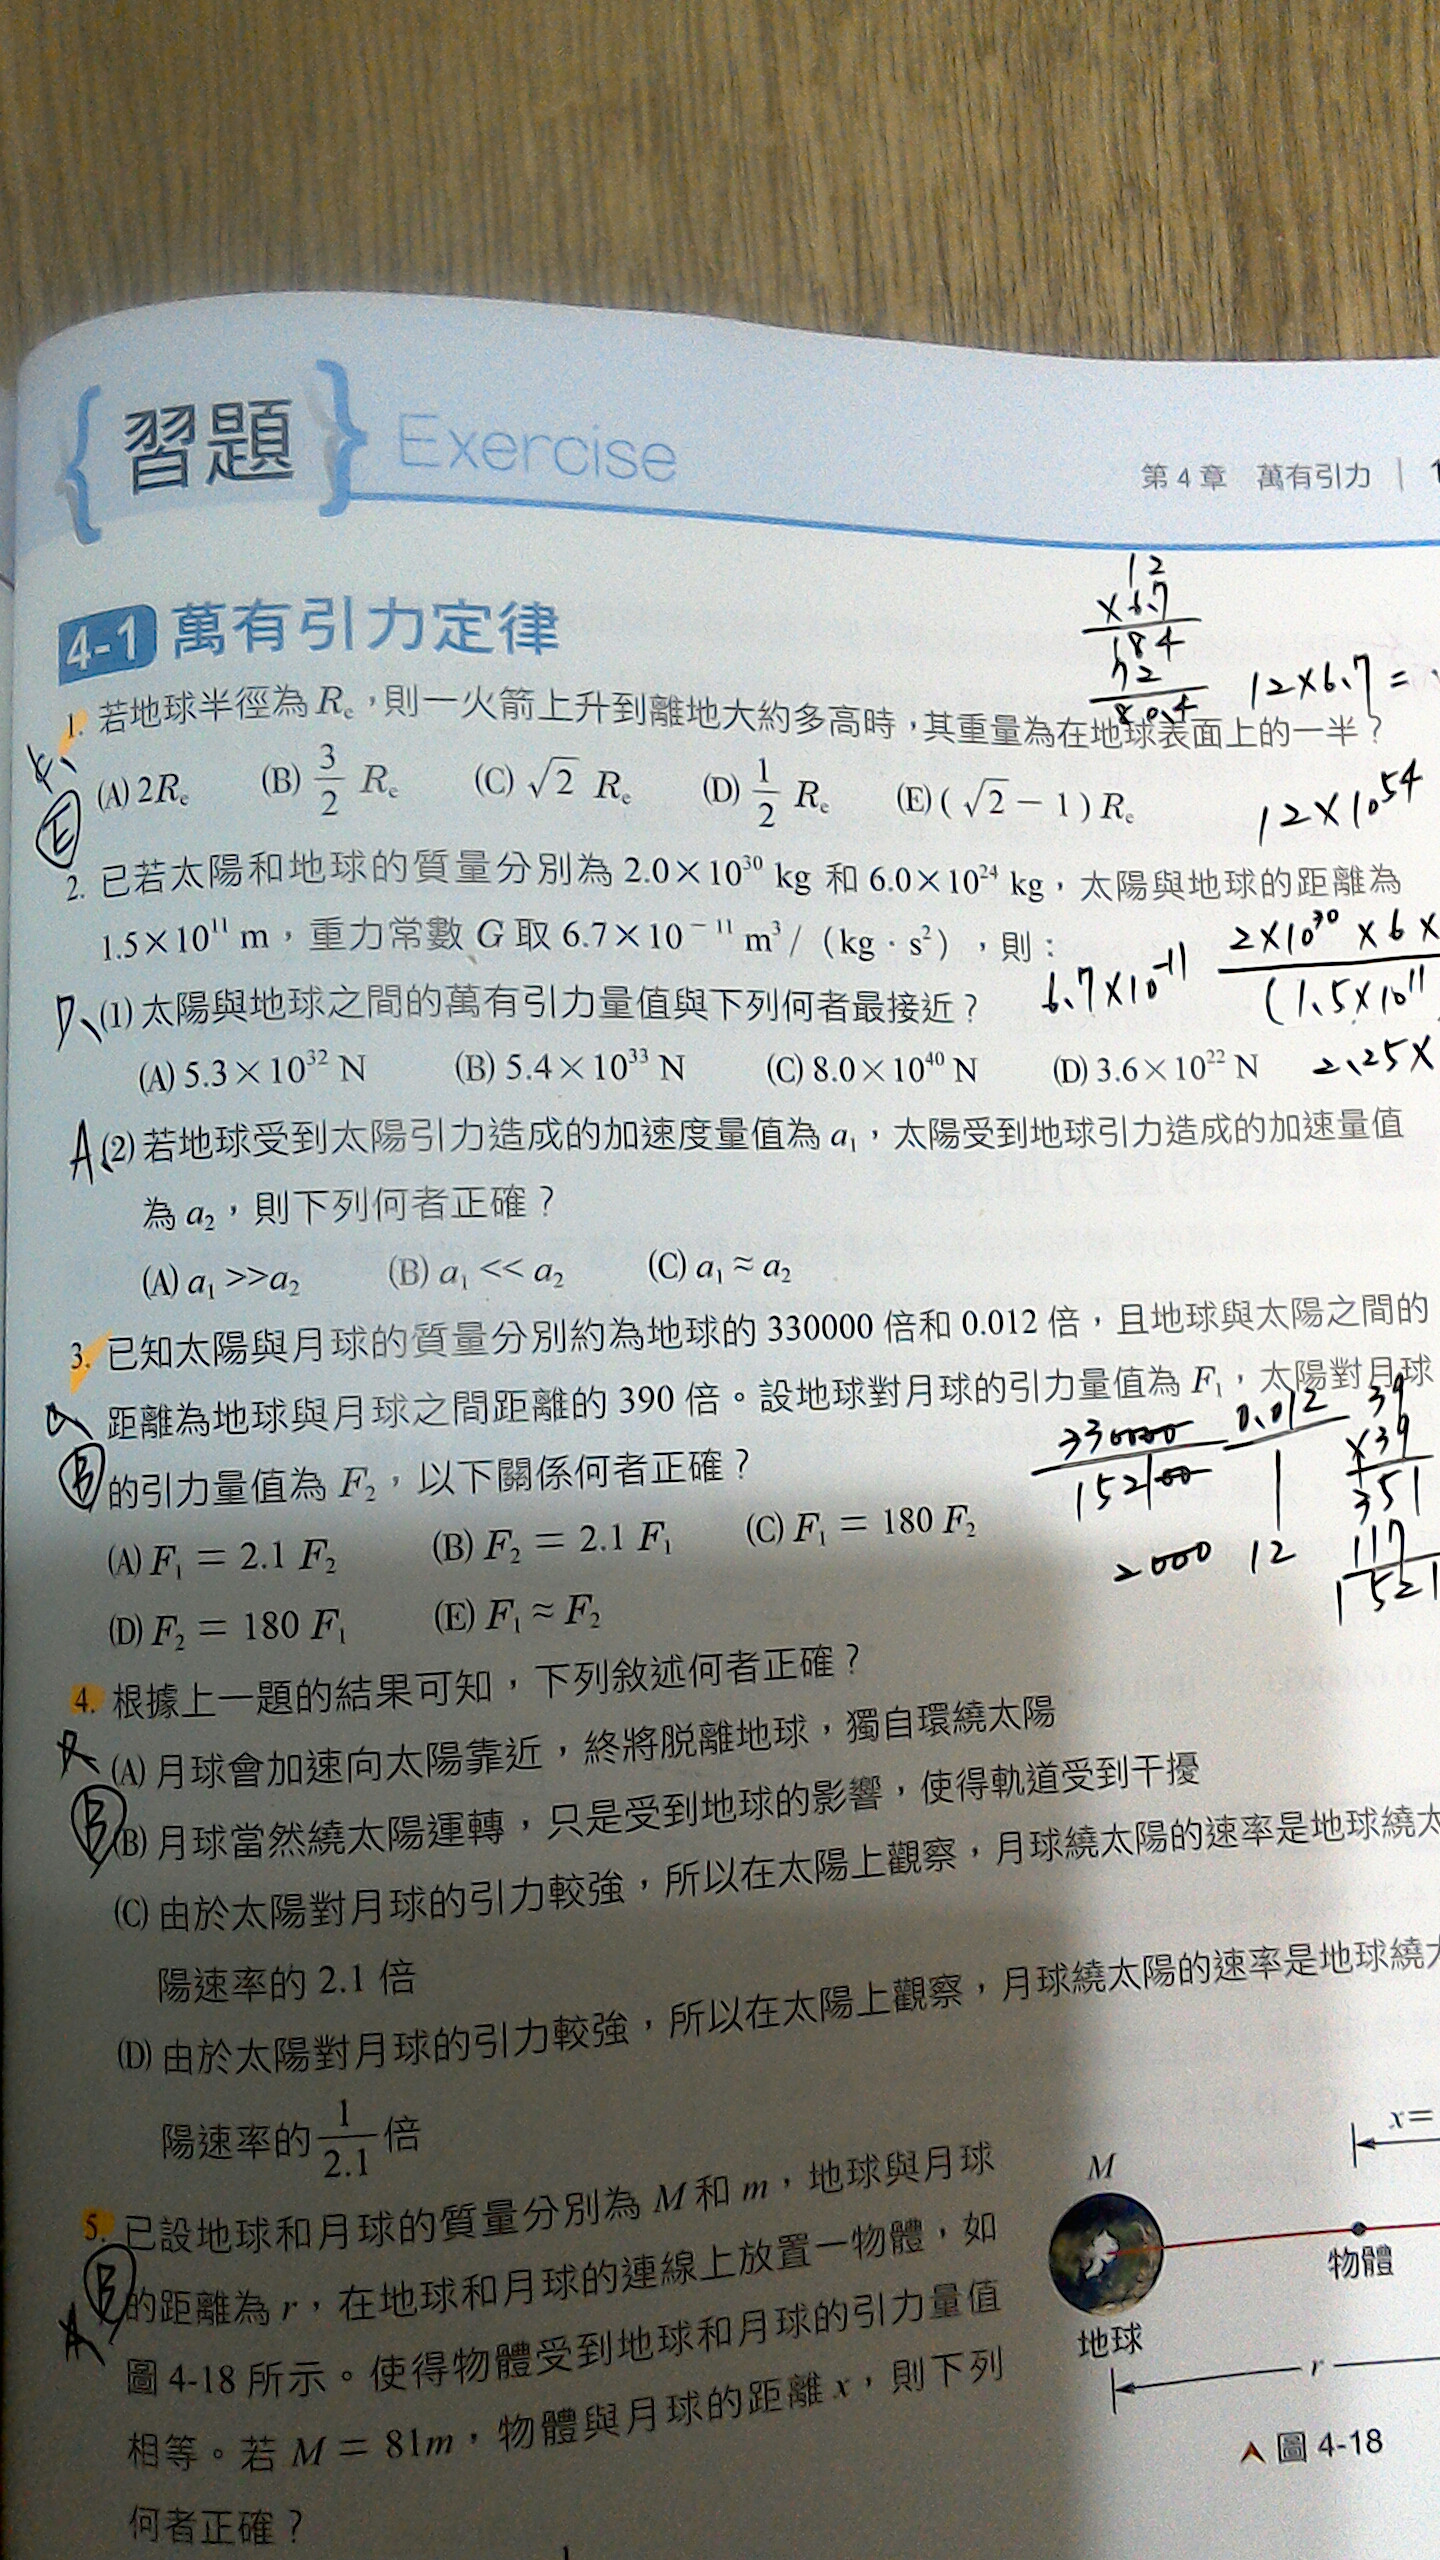 習題 Exercise
第 4 章 萬有引力 | 1
4-1 萬有引力定律
12
×6.7
84
72
80.4
12×6.7=
1. 若地球半徑為 Re，則一火箭上升到離地大約多高時，其重量為在地球表面上的一半？
(A) 2Re (B) 3/2 Re (C) √2 Re (D) 1/2 Re (E) (√2 − 1) Re
E
12×10^54
2. 已若太陽和地球的質量分別為 2.0×10^30 kg 和 6.0×10^24 kg，太陽與地球的距離為
1.5×10^11 m，重力常數 G 取 6.7×10^−11 m^3/（kg · s^2），則：
6.7×10^-11 2×10^30 ×6×
(1.5×10^11
2.25×
D、(1) 太陽與地球之間的萬有引力量值與下列何者最接近？
(A) 5.3×10^32 N (B) 5.4×10^33 N (C) 8.0×10^40 N (D) 3.6×10^22 N
A、(2) 若地球受到太陽引力造成的加速度量值為 a1，太陽受到地球引力造成的加速量值
為 a2，則下列何者正確？
(A) a1 >>a2 (B) a1 << a2 (C) a1 ≈ a2
3. 已知太陽與月球的質量分別約為地球的 330000 倍和 0.012 倍，且地球與太陽之間的
距離為地球與月球之間距離的 390 倍。設地球對月球的引力量值為 F1，太陽對月球
B 的引力量值為 F2，以下關係何者正確？
330000 0.012
152100 1
2000 12
39
×39
351
117
1521
(A) F1 = 2.1 F2 (B) F2 = 2.1 F1 (C) F1 = 180 F2
(D) F2 = 180 F1 (E) F1 ≈ F2
4. 根據上一題的結果可知，下列敘述何者正確？
(A) 月球會加速向太陽靠近，終將脫離地球，獨自環繞太陽
B (B) 月球當然繞太陽運轉，只是受到地球的影響，使得軌道受到干擾
(C) 由於太陽對月球的引力較強，所以在太陽上觀察，月球繞太陽的速率是地球繞太
陽速率的 2.1 倍
(D) 由於太陽對月球的引力較強，所以在太陽上觀察，月球繞太陽的速率是地球繞太
陽速率的 1/2.1 倍
5. 已設地球和月球的質量分別為 M 和 m，地球與月球
B 的距離為 r，在地球和月球的連線上放置一物體，如
A 圖 4-18 所示。使得物體受到地球和月球的引力量值
相等。若 M = 81m，物體與月球的距離 x，則下列
何者正確？
x=
M
物體
地球
r
圖 4-18